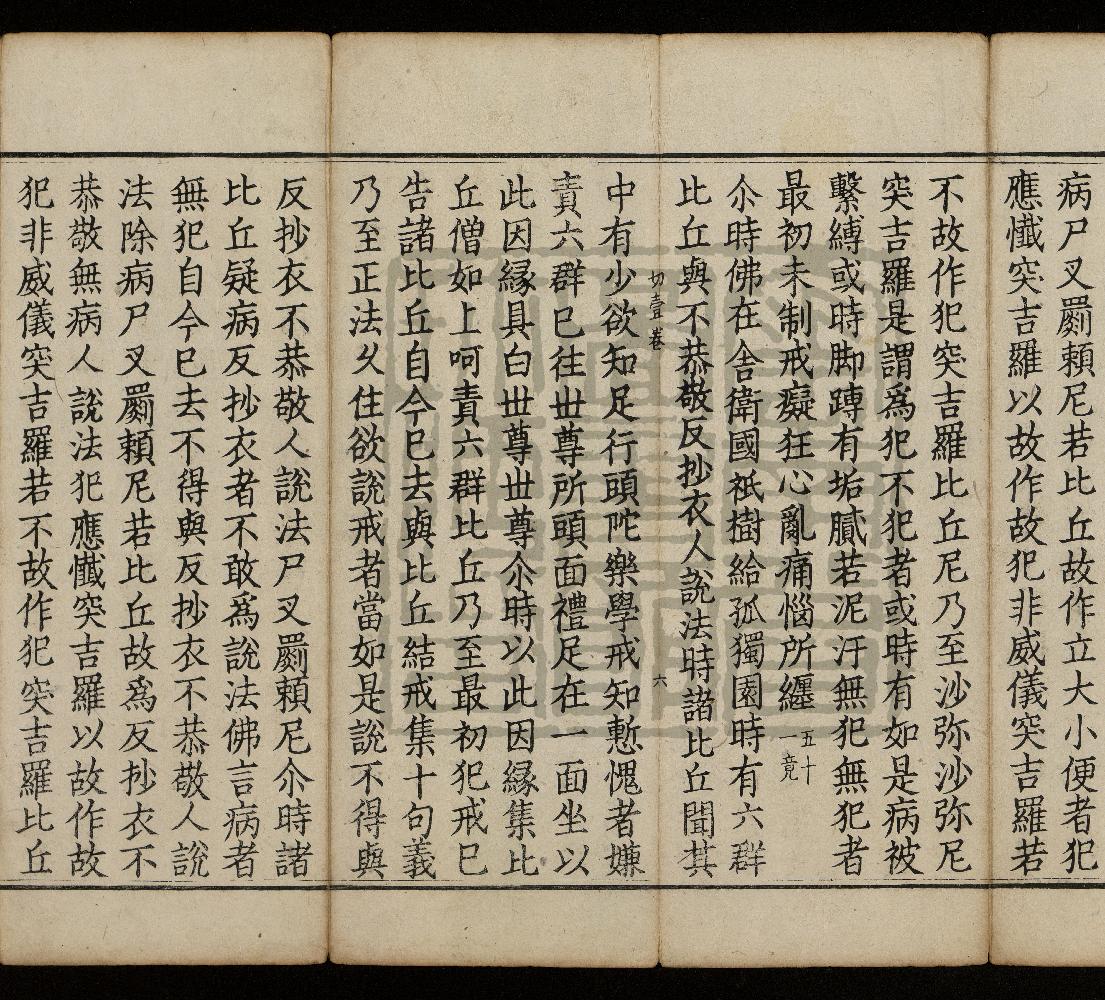 病尸叉罽頼尼若比丘故作立大小便者犯
應懺突吉羅以故作故犯非威儀突吉羅若
不故作犯突吉羅比丘尼乃至沙弥沙弥尼
突吉羅是謂爲犯不犯者或時有如是病被
繫縛或時脚蹲有垢膩若泥汙無犯無犯者
最初未制戒癡狂心亂痛惱所纏五十一竟
尒時佛在舎衛國祇樹給孤獨園時有六群
比丘與不恭敬反抄衣人說法時諸比丘聞其
切壹卷 六
中有少欲知足行頭陀樂學戒知慙愧者嫌
責六群已往世尊所頭面禮足在一面坐以
此因縁具白世尊世尊尒時以此因縁集比
丘僧如上呵責六群比丘乃至最初犯戒已
告諸比丘自今已去與比丘結戒集十句義
乃至正法久住欲說戒者當如是說不得與
反抄衣不恭敬人說法尸叉罽頼尼尒時諸
比丘疑病反抄衣者不敢爲說法佛言病者
無犯自今已去不得與反抄衣不恭敬人說
法除病尸叉罽頼尼若比丘故爲反抄衣不
恭敬無病人說法犯應懺突吉羅以故作故
犯非威儀突吉羅若不故作犯突吉羅比丘